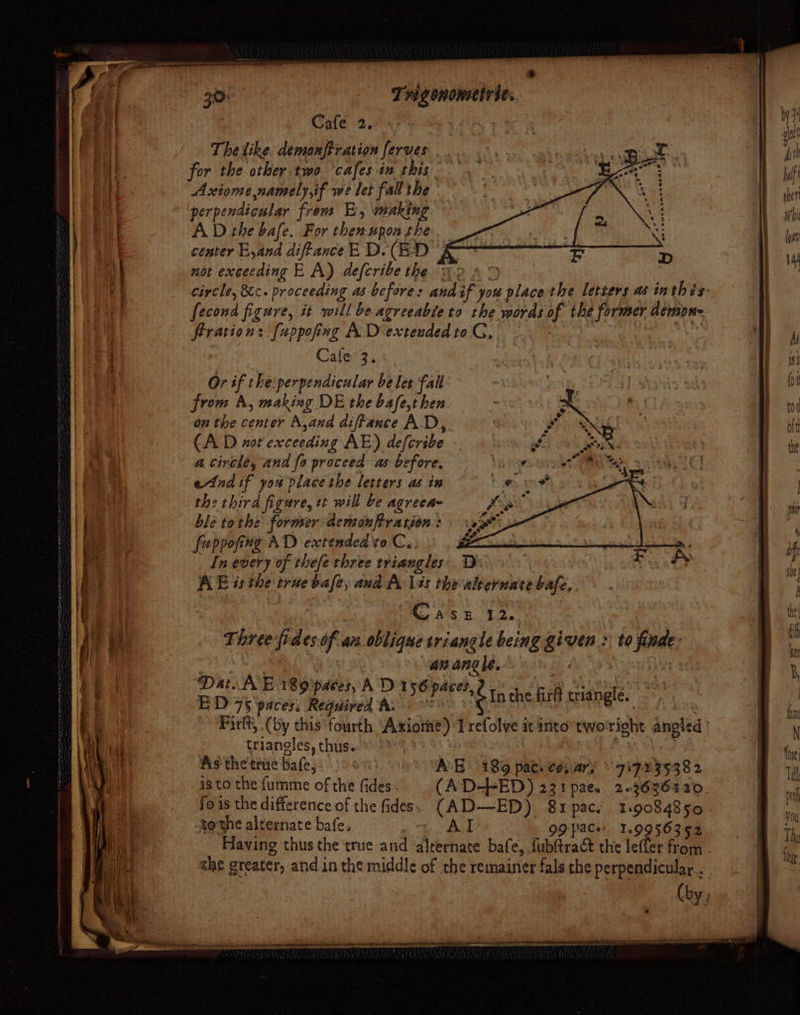 30 Trigonometrie.
Case 2.
The like demonstration serves
for the other two cases in this
Axiome, namely, if we let fall the
perpendicular from E, making
A D the base. For then upon the
center E, and distance E D. (E D
not exceeding E A) describe the
circle, &c. proceeding as before: and if you place the letters as in this
second figure, it will be agreeable to the words of the former demon-
stration: supposing A D extended to C.
B E
2
A F D
Case 3.
Or if the perpendicular be let fall
from A, making DE the base, then
on the center A, and distance A D,
(A D not exceeding AE) describe
a circle, and so proceed as before.
And if you place the letters as in
the third figure, it will be agreea-
ble to the former demonstration:
supposing AD extended to C.
In every of these three triangles
A E is the true base, and A I is the alternate base.
E
B
D F A
Case 12.
Three sides of an oblique triangle being given: to finde
an angle.
Dat. A E 189 paces, A D 156 paces, In the first triangle.
E D 75 paces. Required A.
First, (by this fourth Axiome) I resolve it into two right angled
triangles, thus.
As the true base, A E 189 pac. co. ar. 7.7235382
is to the summe of the sides. (A D+ED) 231 paes. 2.3636120
so is the difference of the sides. (AD—ED) 81 pac. 1.9084850
to the alternate base. A I 99 pac. 1.9956352
Having thus the true and alternate base, substract the lesser from
the greater, and in the middle of the remainer fals the perpendicular.
(by,